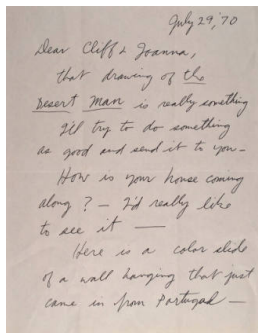 July 29, '70
Dear Cliff & Joanna,
that drawing of the
Desert Man is really something
I'll try to do something
as good and send it to you -
How is your house coming
along? - I'd really like
to see it —
Here is a color slide
of a wall hanging that just
came in from Portugal —